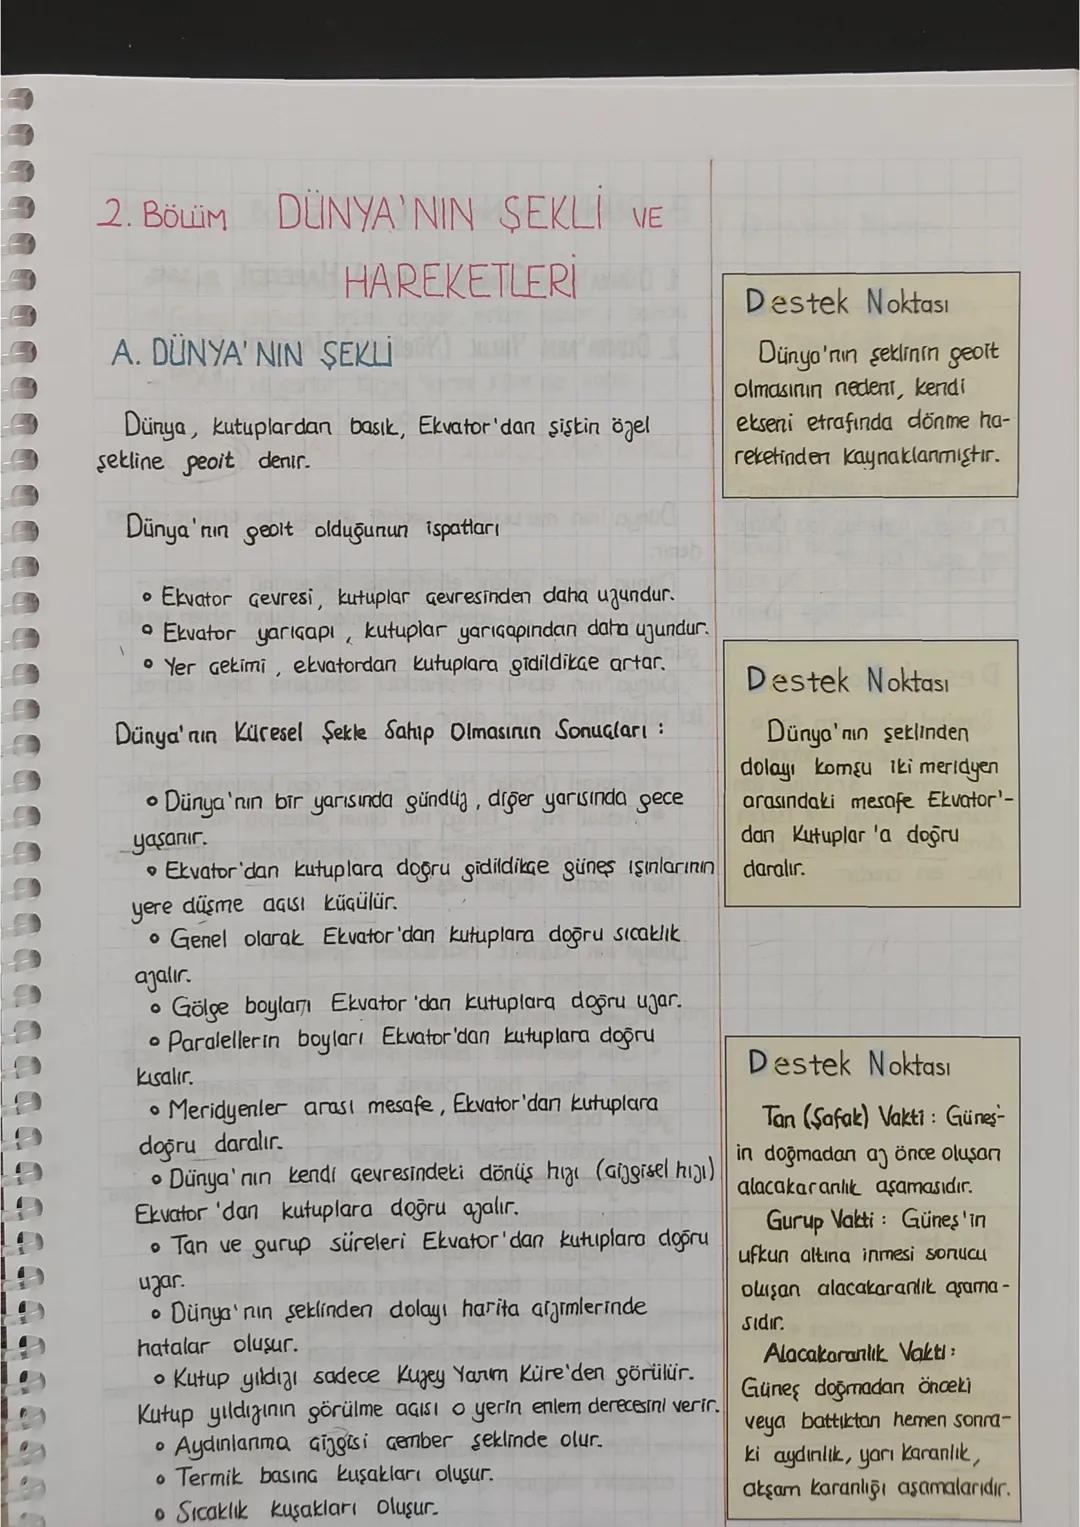 2. Bölüm DÜNYA'NIN ŞEKLİ VE
HAREKETLERİ
A. DÜNYA'NIN ŞEKLİ
Dünya, kutuplardan basık, Ekvator'dan şişkin özel
şekline geoit denir.
Dünya'nın geoit olduğunun ispatları
• Ekvator çevresi, kutuplar çevresinden daha uzundur.
• Ekvator yarıçapı, kutuplar yarıçapından daha uzundur.
• Yer çekimi, ekvatordan kutuplara gidildikçe artar.
Dünya'nın Küresel Şekle Sahip Olmasının Sonuçları :
• Dünya'nın bir yarısında gündüz, diğer yarısında gece
yaşanır.
• Ekvator'dan kutuplara doğru gidildikçe güneş ışınlarının
yere düşme açısı küçülür.
• Genel olarak Ekvator'dan kutuplara doğru sıcaklık
azalır.
• Gölge boyları Ekvator'dan kutuplara doğru uzar.
• Paralellerin boyları Ekvator'dan kutuplara doğru
kısalır.
• Meridyenler arası mesafe, Ekvator'dan kutuplara
doğru daralır.
• Dünya'nın kendi çevresindeki dönüş hızı (çizgisel hızı)
Ekvator'dan kutuplara doğru azalır.
• Tan ve gurup süreleri Ekvator'dan kutuplara doğru
uzar.
• Dünya'nın şeklinden dolayı harita çizimlerinde
hatalar oluşur.
• Kutup yıldızı sadece Kuzey Yarım Küre'den görülür.
Kutup yıldızının görülme açısı o yerin enlem derecesini verir.
• Aydınlanma çizgisi çember şeklinde olur.
• Termik basınç kuşakları oluşur.
• Sıcaklık kuşakları oluşur.
Destek Noktası
Dünya'nın şeklinin geoit
olmasının nedeni, kendi
ekseni etrafında dönme ha-
reketinden kaynaklanmıştır.
Destek Noktası
Dünya'nın şeklinden
dolayı komşu iki meridyen
arasındaki mesafe Ekvator'-
dan Kutuplar'a doğru
daralır.
Destek Noktası
Tan (Şafak) Vakti : Güneş'-
in doğmadan az önce oluşan
alacakaranlık aşamasıdır.
Gurup Vakti : Güneş'in
ufkun altına inmesi sonucu
oluşan alacakaranlık aşama-
sıdır.
Alacakaranlık Vakti :
Güneş doğmadan önceki
veya battıktan hemen sonra-
ki aydınlık, yarı karanlık,
akşam karanlığı aşamalarıdır.